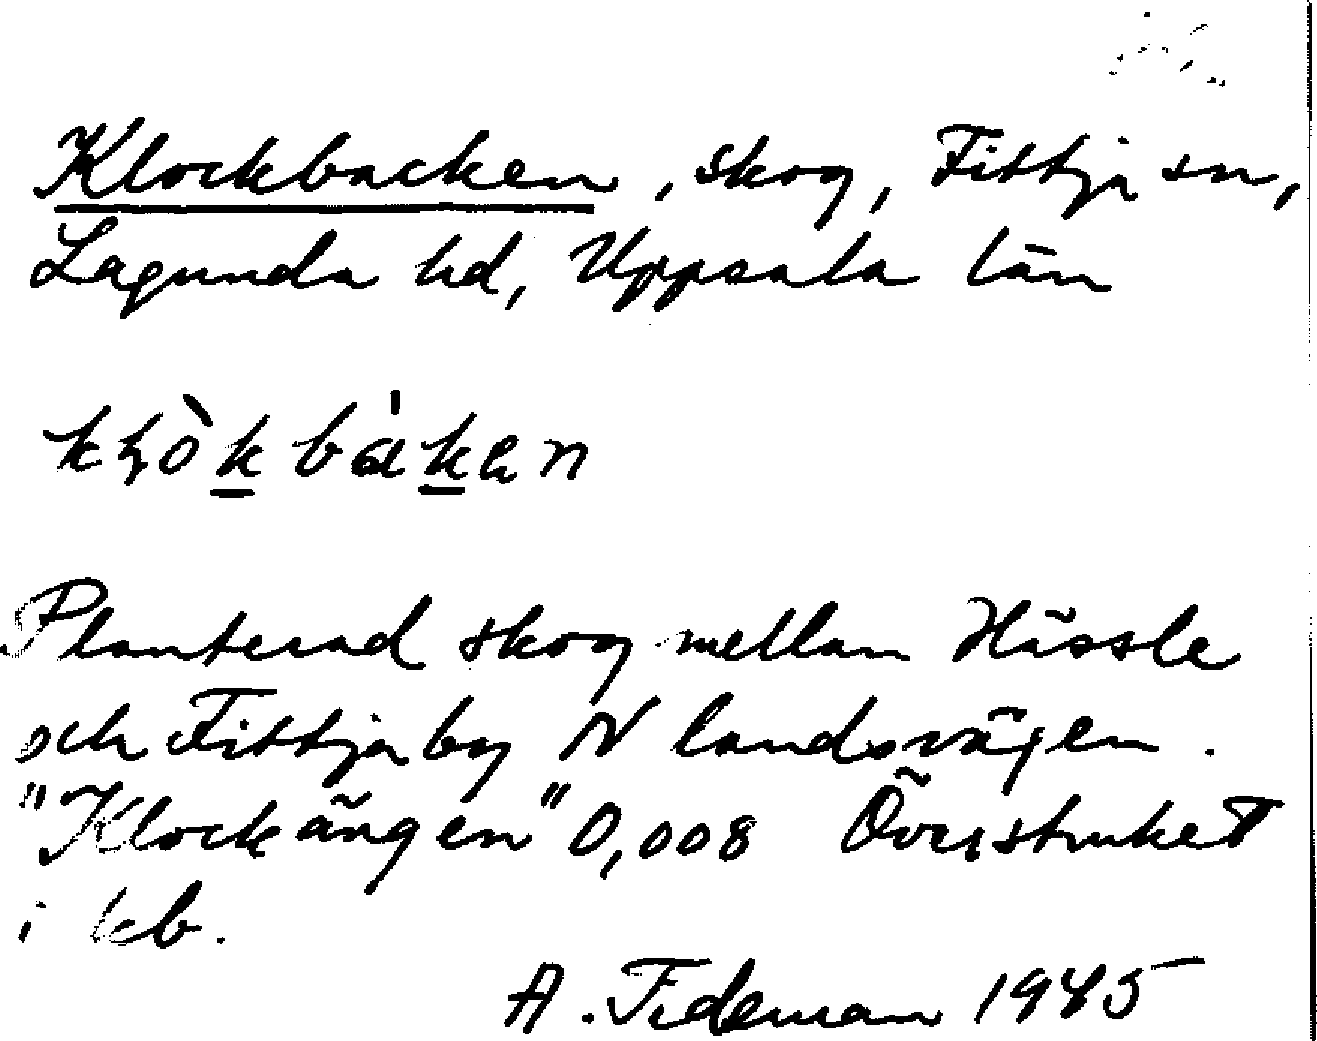 Klockbacken, skog, Fittja sn,
Lagunda hd, Uppsala län
Planterad skog mellan Hässle
och Fittja by N landsvägen.
"Klockängen" 0,008 Överstruket
i kb.
A. Tideman 1945